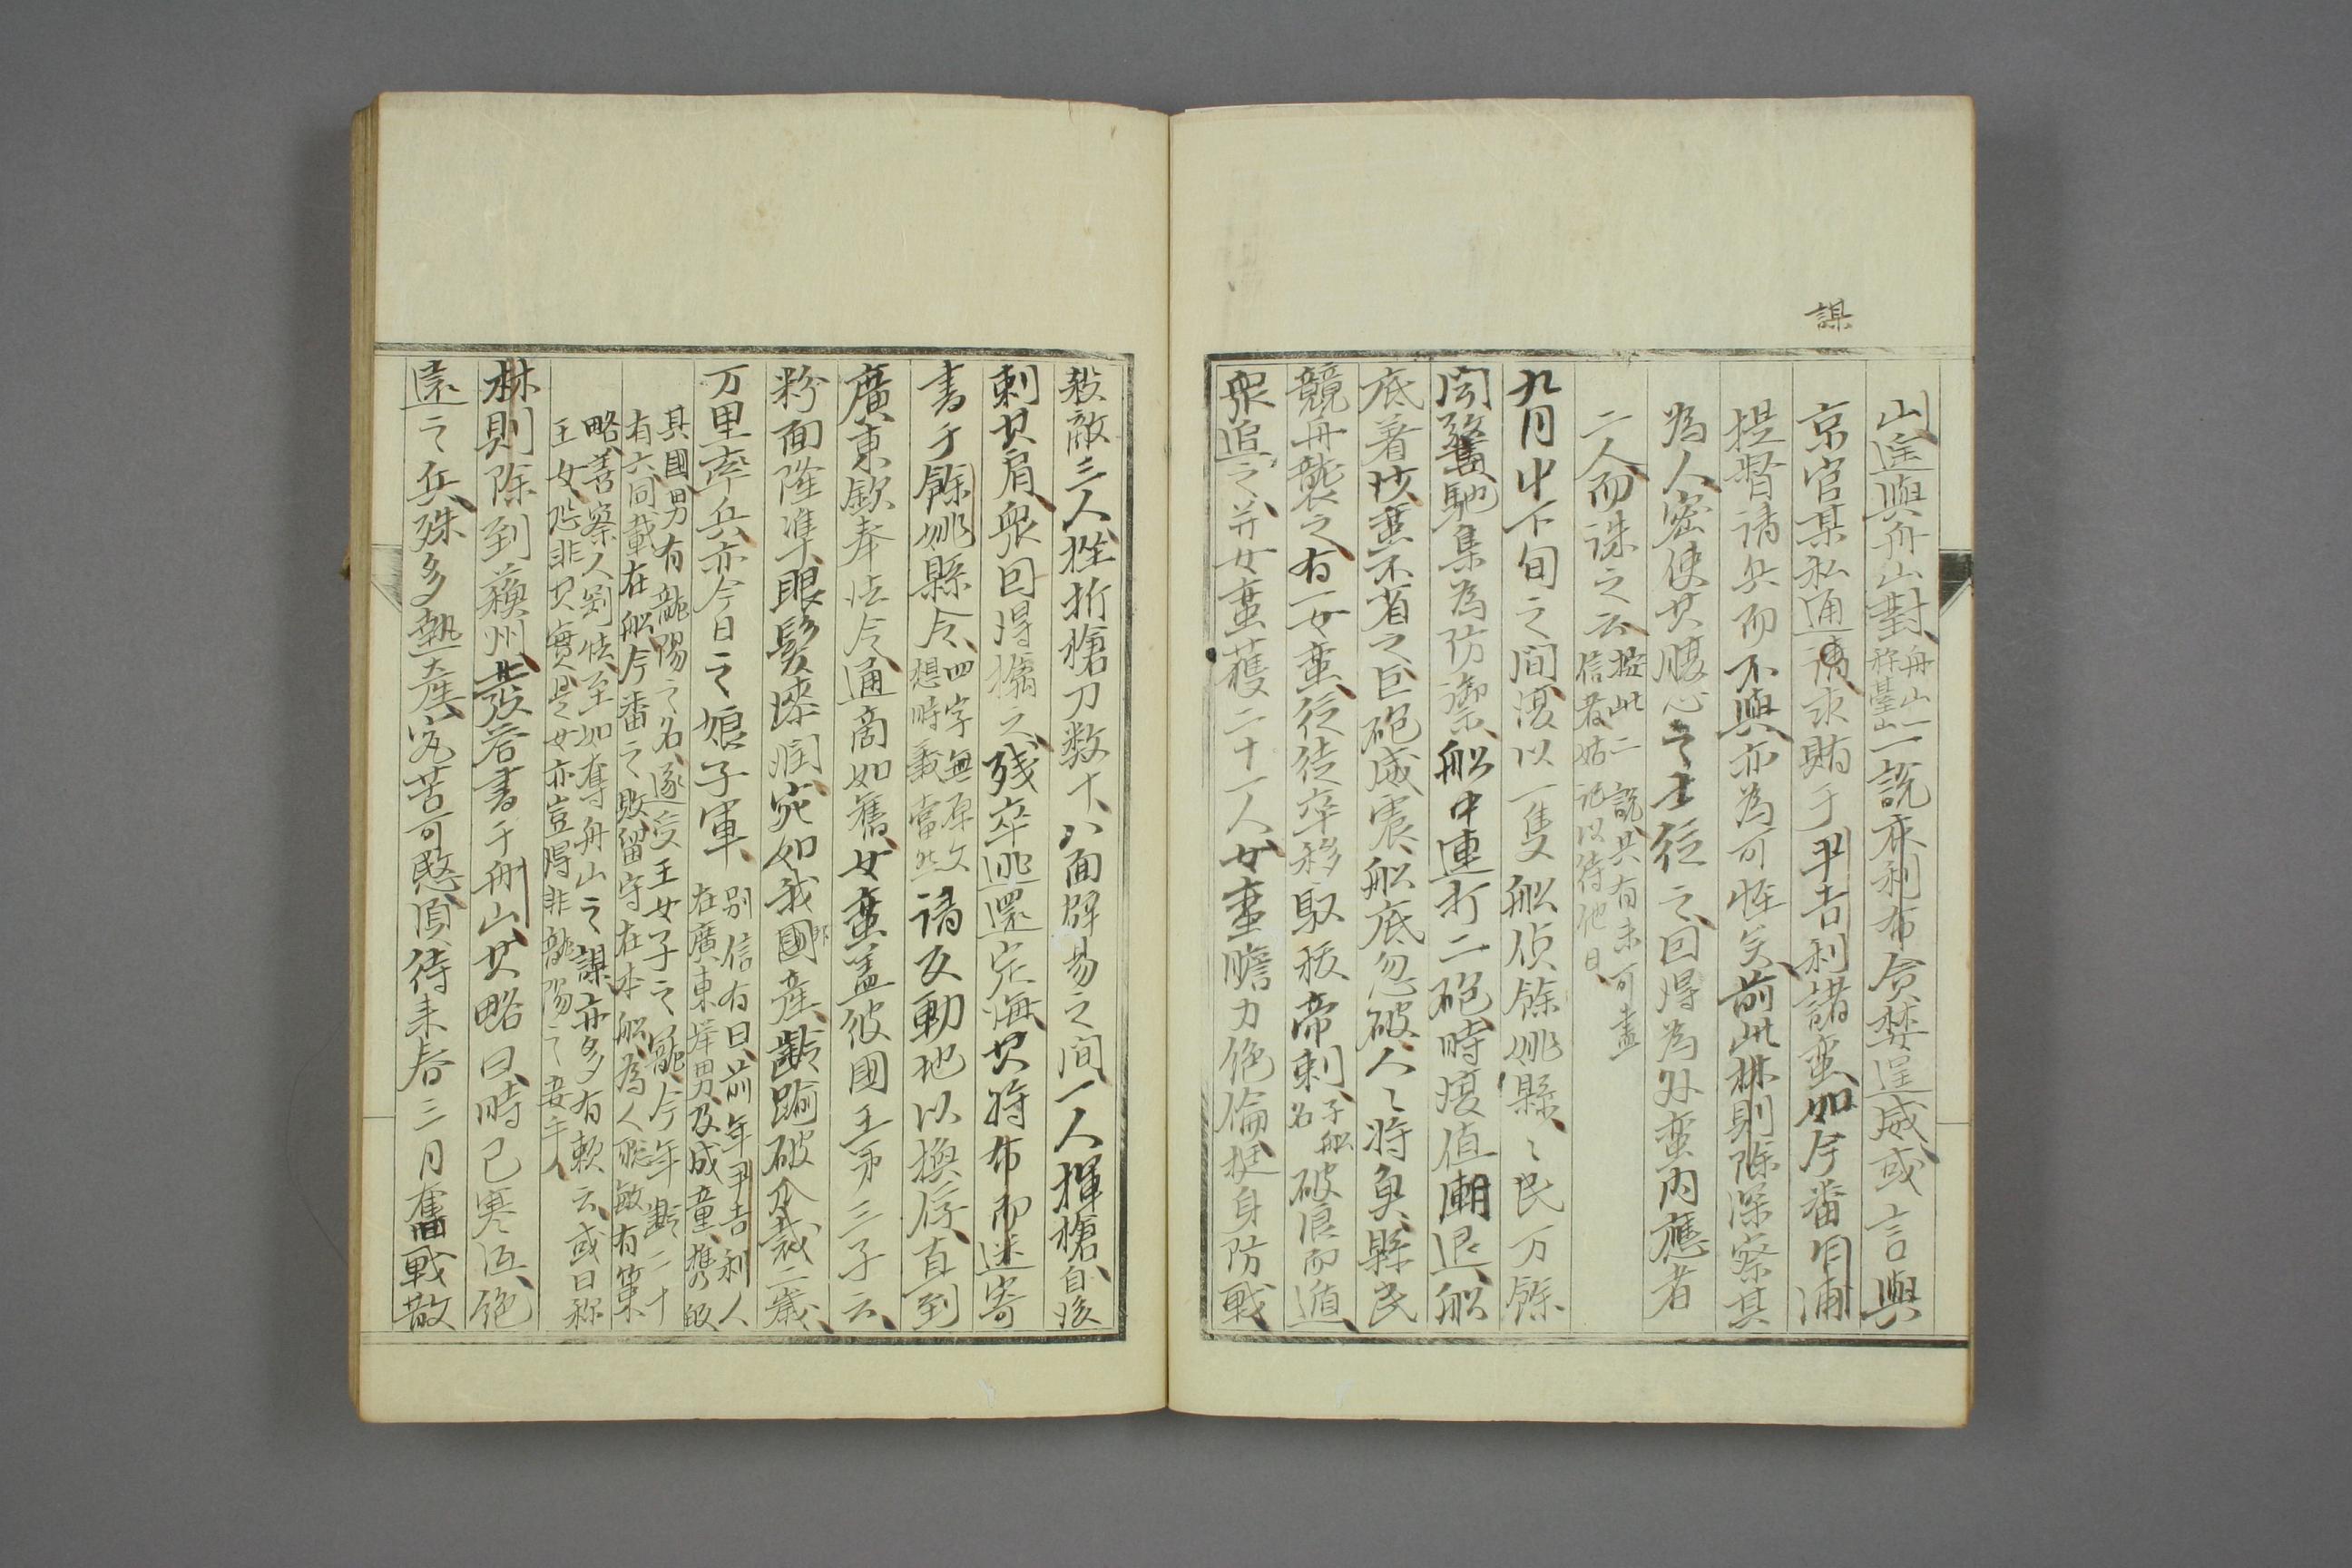 謀
山遙與舟山對舟山一称臺山一說亦利布貪婪逞威或言與
京官某私通請求賄于尹吉利諸蛮如今番自浦
提督請兵而不與亦為可恠矣前此林則除深察其
為人密使其腹心之士徃之回得為外蛮内應者
二人而誅之云據此二說其有未可盡信者姑記以待他日
九月中下旬之間復以一隻舩偵餘姚縣〻民万餘
聞警馳集為防禦舩中連打二砲時復值潮退舩
底着坎蛮不省之巨砲威震舩底忽破人〻将負縣民
競舟襲之有一女蛮徃徒卒移馭移帝剌子舩名破浪而遁
衆追之并女蛮獲二十一人女蛮膽力絶倫挺身防戦
殺敵三人挫折槍刀数十八面辟易之間一人揮槍自後
刺其肩衆因得擒之残卒逃還定海其将布而迷寄
書于餘姚縣令四字無原文想時義當然請反動地以換俘直到
廣東欽奉法令通商如舊女蛮盖彼國王第三子云
粉面隆準眼髪漆潤宛如我國産齡踰破瓜裁二歳
万里率兵亦今日之娘子軍別信有曰前年尹吉利人在廣東岸男及成童携皈
其國男有龍陽之名遂受王女子之寵今年齡二十
有六同載在舩今番之敗留守在本舩為人聡敏有策
略善察人劉怯至如奪舟山之謀亦多有頼云或曰称
王女恐非其實是女亦豈得非龍陽之妻乎
林則除到蘓州發咨書于舟山其略曰時已寒沍絶
遠之兵殊多熱産寃苦可愍湏待来春三月奮戦散